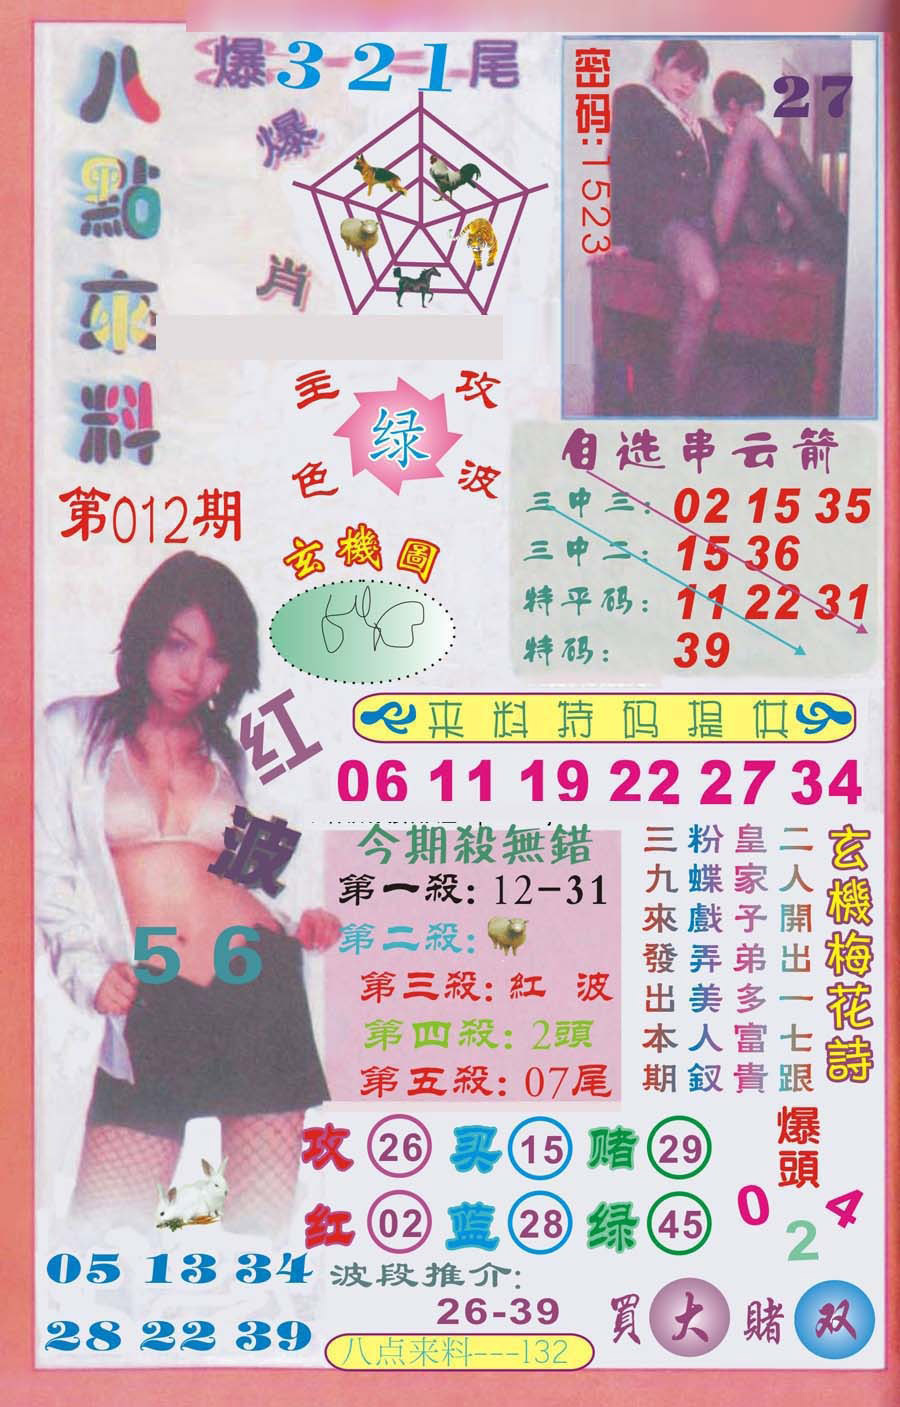 八點來料
爆321尾
爆肖
密码:1523
27
主攻
绿
色波
第012期
玄機圖
自选串云箭
三中三: 02 15 35
三中二: 15 36
特平码: 11 22 31
特码: 39
来料特码提供
06 11 19 22 27 34
红波
56
今期殺無錯
第一殺: 12-31
第二殺:
第三殺: 紅 波
第四殺: 2頭
第五殺: 07尾
玄機梅花詩
二人開出一七跟
皇家子弟多富貴
粉蝶戲弄美人釵
三九來發出本期
攻 26 买 15 赌 29
红 02 蓝 28 绿 45
爆頭
0 2 4
05 13 34
28 22 39
波段推介:
26-39
買大 賭双
八点来料---132